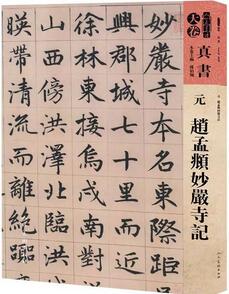 妙嚴寺本名東際距
興郡城七十里而近
徐林東接烏戍南對
山西傍洪澤北臨洪
映帶清流而離絕
真書
元
趙孟頫妙嚴寺記